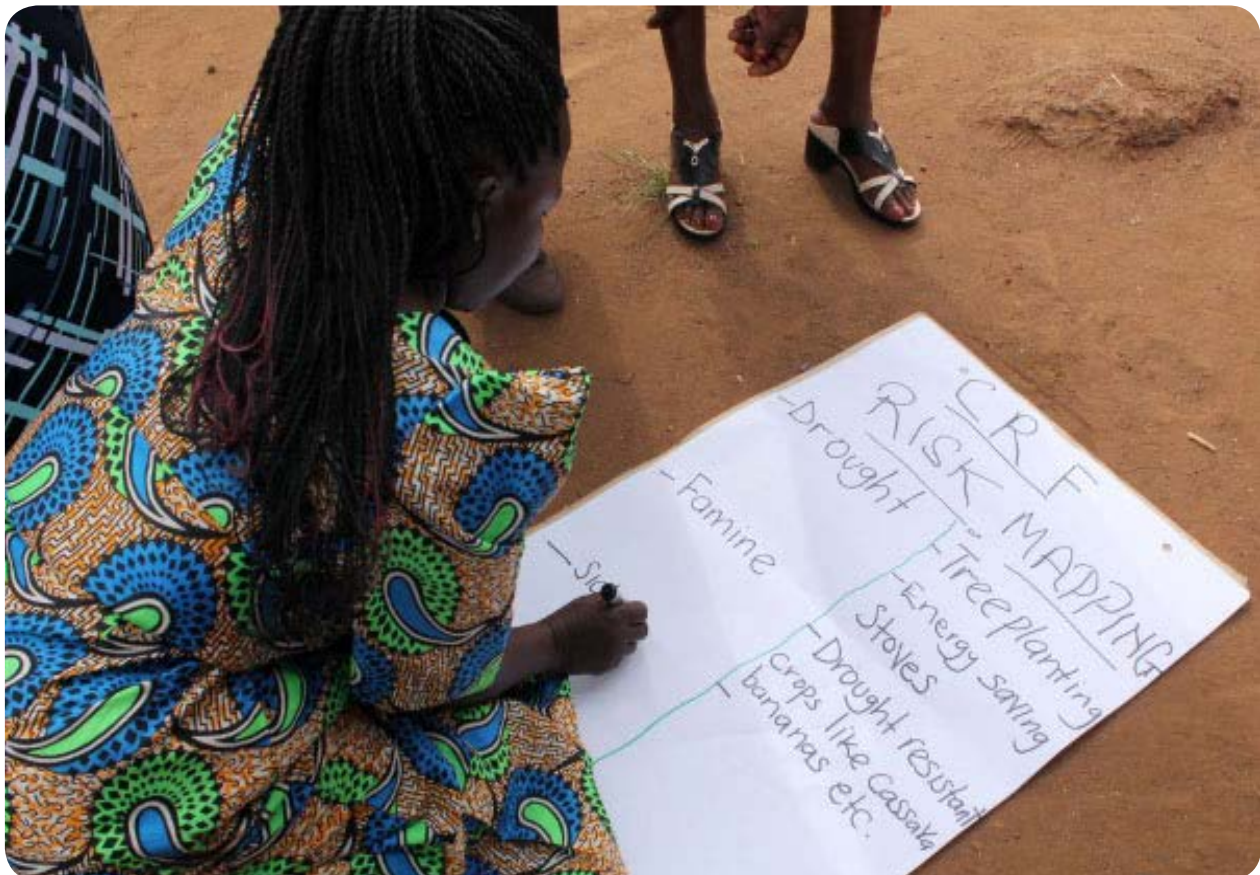 CRF
RISK MAPPING
- Drought
- Famine
- Sic
- Treeplanting
- Energy saving
Stoves
- Drought resistant
crops like Cassaka
bananas etc.
-